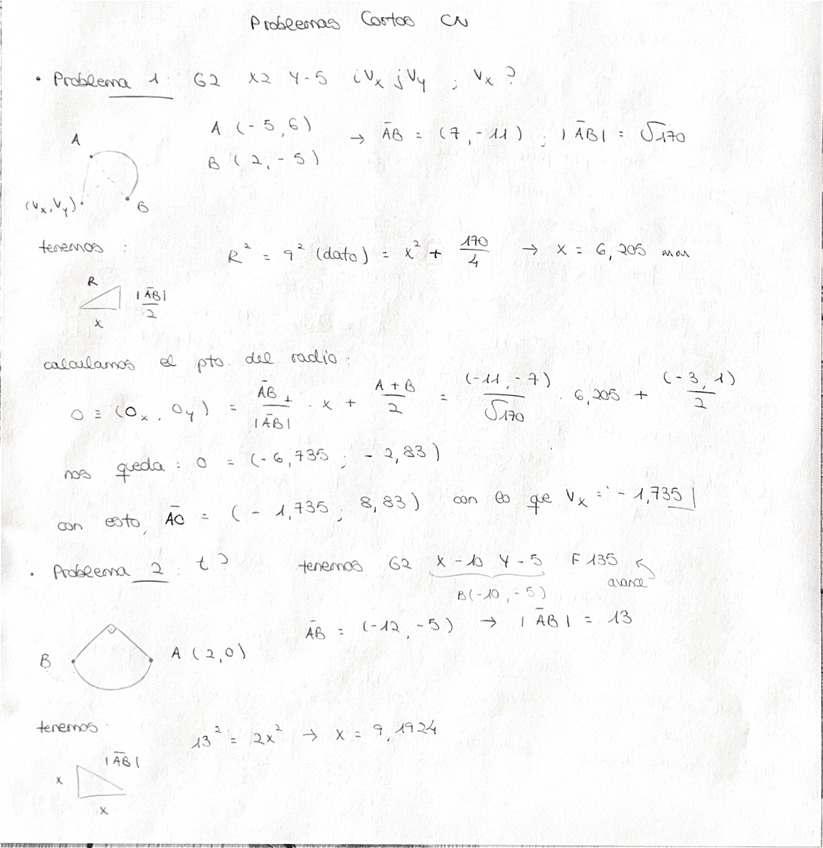 Problemas Cortos CN
• Problema 1: G2 X2 Y-5 iVx jVy ; Vx?
A (-5,6)
B (2,-5)
→ A̅B = (7,-11) ; |A̅B| = √170
A
(Vx,Vy)
B
tenemos :
R² = 9² (dato) = x² + 170/4 → x = 6,205 mm
R
|A̅B|/2
x
calculamos el pto. del radio:
O ≡ (Ox, Oy) = A̅B⊥/|A̅B| · x + (A+B)/2 = (-11,-7)/√170 · 6,205 + (-3,1)/2
nos queda: O = (-6,735 ; -2,83)
con esto, A̅O = (-1,735 ; 8,83) con lo que Vx = -1,735
• Problema 2: t? tenemos G2 X-10 Y-5 F135
B(-10,-5)
avance
A̅B = (-12,-5) → |A̅B| = 13
B
A (2,0)
tenemos.
13² = 2x² → x = 9,1924
x
|A̅B|
x